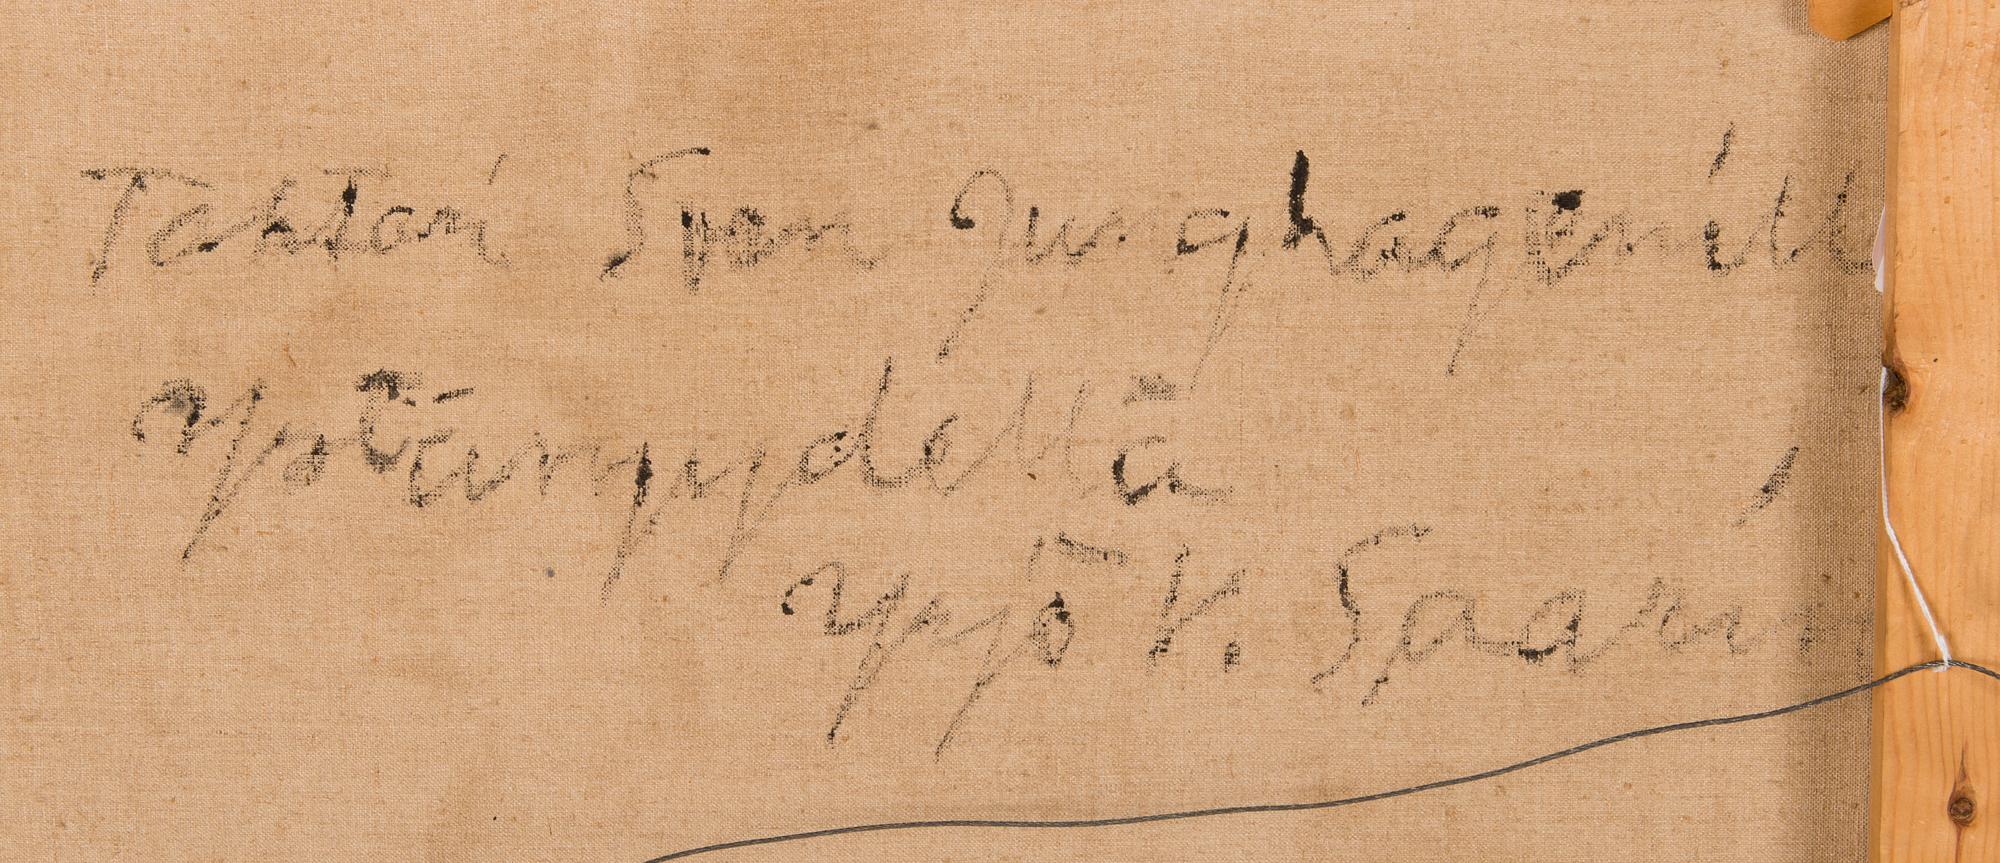 Tohtori Sven Junghagenill
ystävyydellä
Yrjö V. Saarin